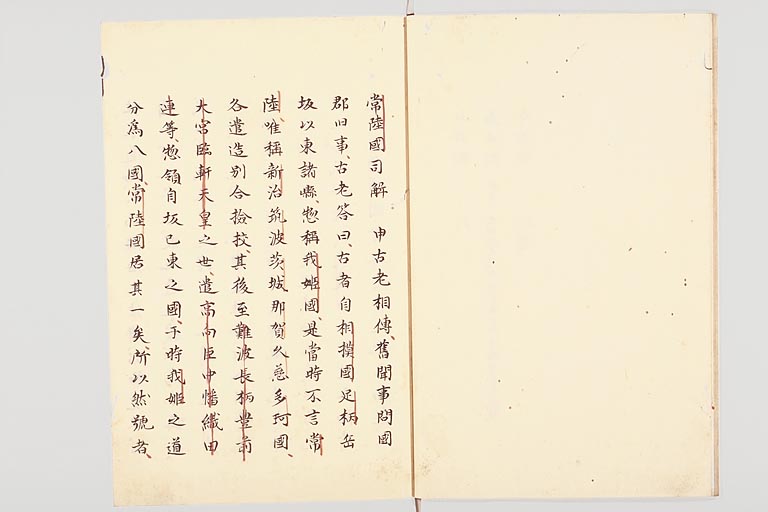 常陸國司解　申古老相傳舊聞事問國
郡旧事古老答曰古者自相摸國足柄岳
坂以東諸縣惣稱我姫國是當時不言常
陸唯稱新治筑波茨城那賀久慈多珂國
各遣造別令撿挍其後至難波長柄豊前
大宮臨軒天皇之世遣高向臣中幡織田
連等惣領自坂已東之國于時我姫之道
分為八國常陸國居其一矣所以然號者